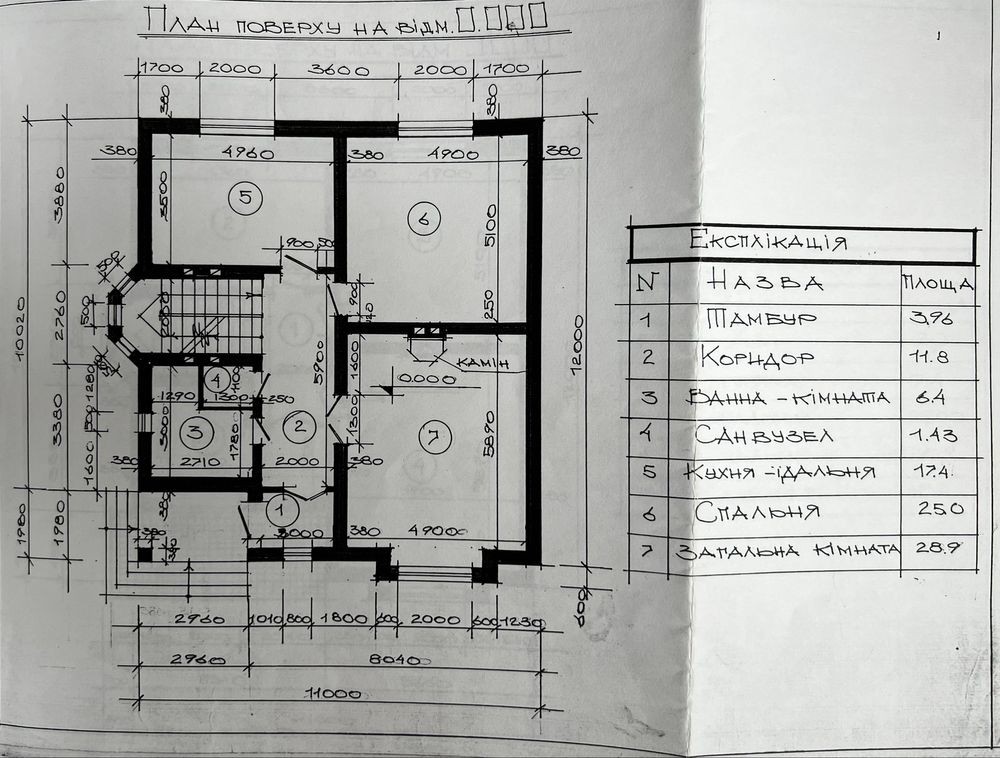 План поверху на відм. 0.000
1700 2000 3600 2000 1700
380 380
380 4960 380 4900 380
3500 5 6 5100
900
3880 2760 3380 1980
10020
500 500
900
250
5900
12000
камін
0.000
1600
1290 1300 250
4
1280
500
1600
3000 3 2 1300 7 5890
1780
380 2710 2000 380
1980
380
1
3000 380 4900
600
2960 1010 800 1800 600 2000 600 1230
2960 8040
11000
Експлікація
N Назва площа
1 Тамбур 3.96
2 Коридор 11.8
3 Ванна - кімната 6.4
4 Санвузел 1.43
5 Кухня - їдальня 17.4
6 Спальня 25.0
7 Загальна кімната 28.9